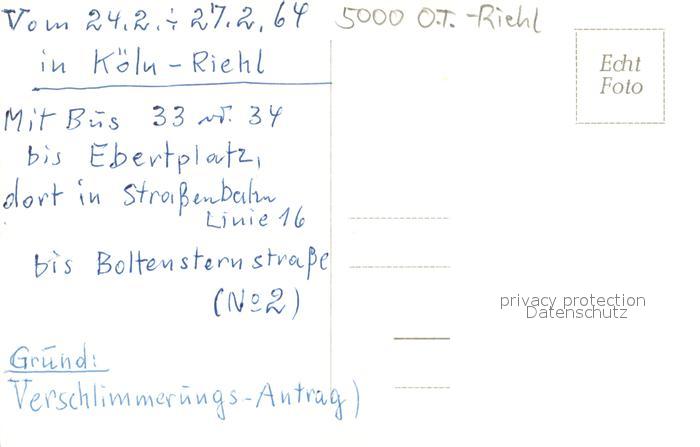 Vom 24.2. ÷ 27.2.64
in Köln-Riehl
Mit Bus 33 od. 34
bis Ebertplatz,
dort in Straßenbahn
Linie 16
bis Boltensternstraße
(No 2)
Grund:
Verschlimmerungs-Antrag)
5000 O.T.-Riehl
Echt
Foto
privacy protection
Datenschutz